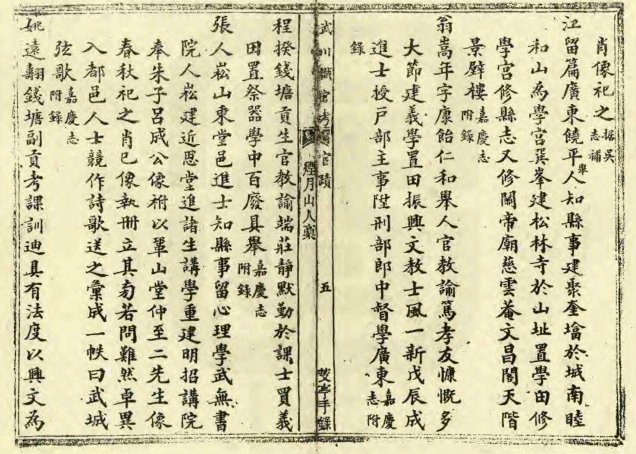 肖像祀之據吳志補
江留篇廣東饒平舉人知縣事建聚奎墖於城南睦
和山為學宮巽峯建松林寺於山址置學田修
學宮修縣志又修關帝廟慈雲菴文昌閣天階
景壁樓嘉慶志附錄
翁嵩年字康飴仁和舉人官教諭篤孝友慷慨多
大節建義學置田振興文教士風一新戊辰成
進士授戶部主事陞刑部郎中督學廣東嘉慶志附
錄
武川 官蹟 五 煙月山人藁
程揆錢塘貢生官教諭端莊靜默勤於課士買義
田置祭器學中百廢具舉嘉慶志附錄
張人崧山東堂邑進士知縣事留心理學武無書
院人崧建近思堂進諸生講學重建明招講院
奉朱子呂成公像祔以鞏山堂仲至二先生像
春秋祀之肖已像執冊立其旁若問難然卓異
入都邑人士競作詩歌送之彙成一帙曰武城
弦歌嘉慶志附錄
姚遠翻錢塘副貢考課訓迪具有法度以興文為